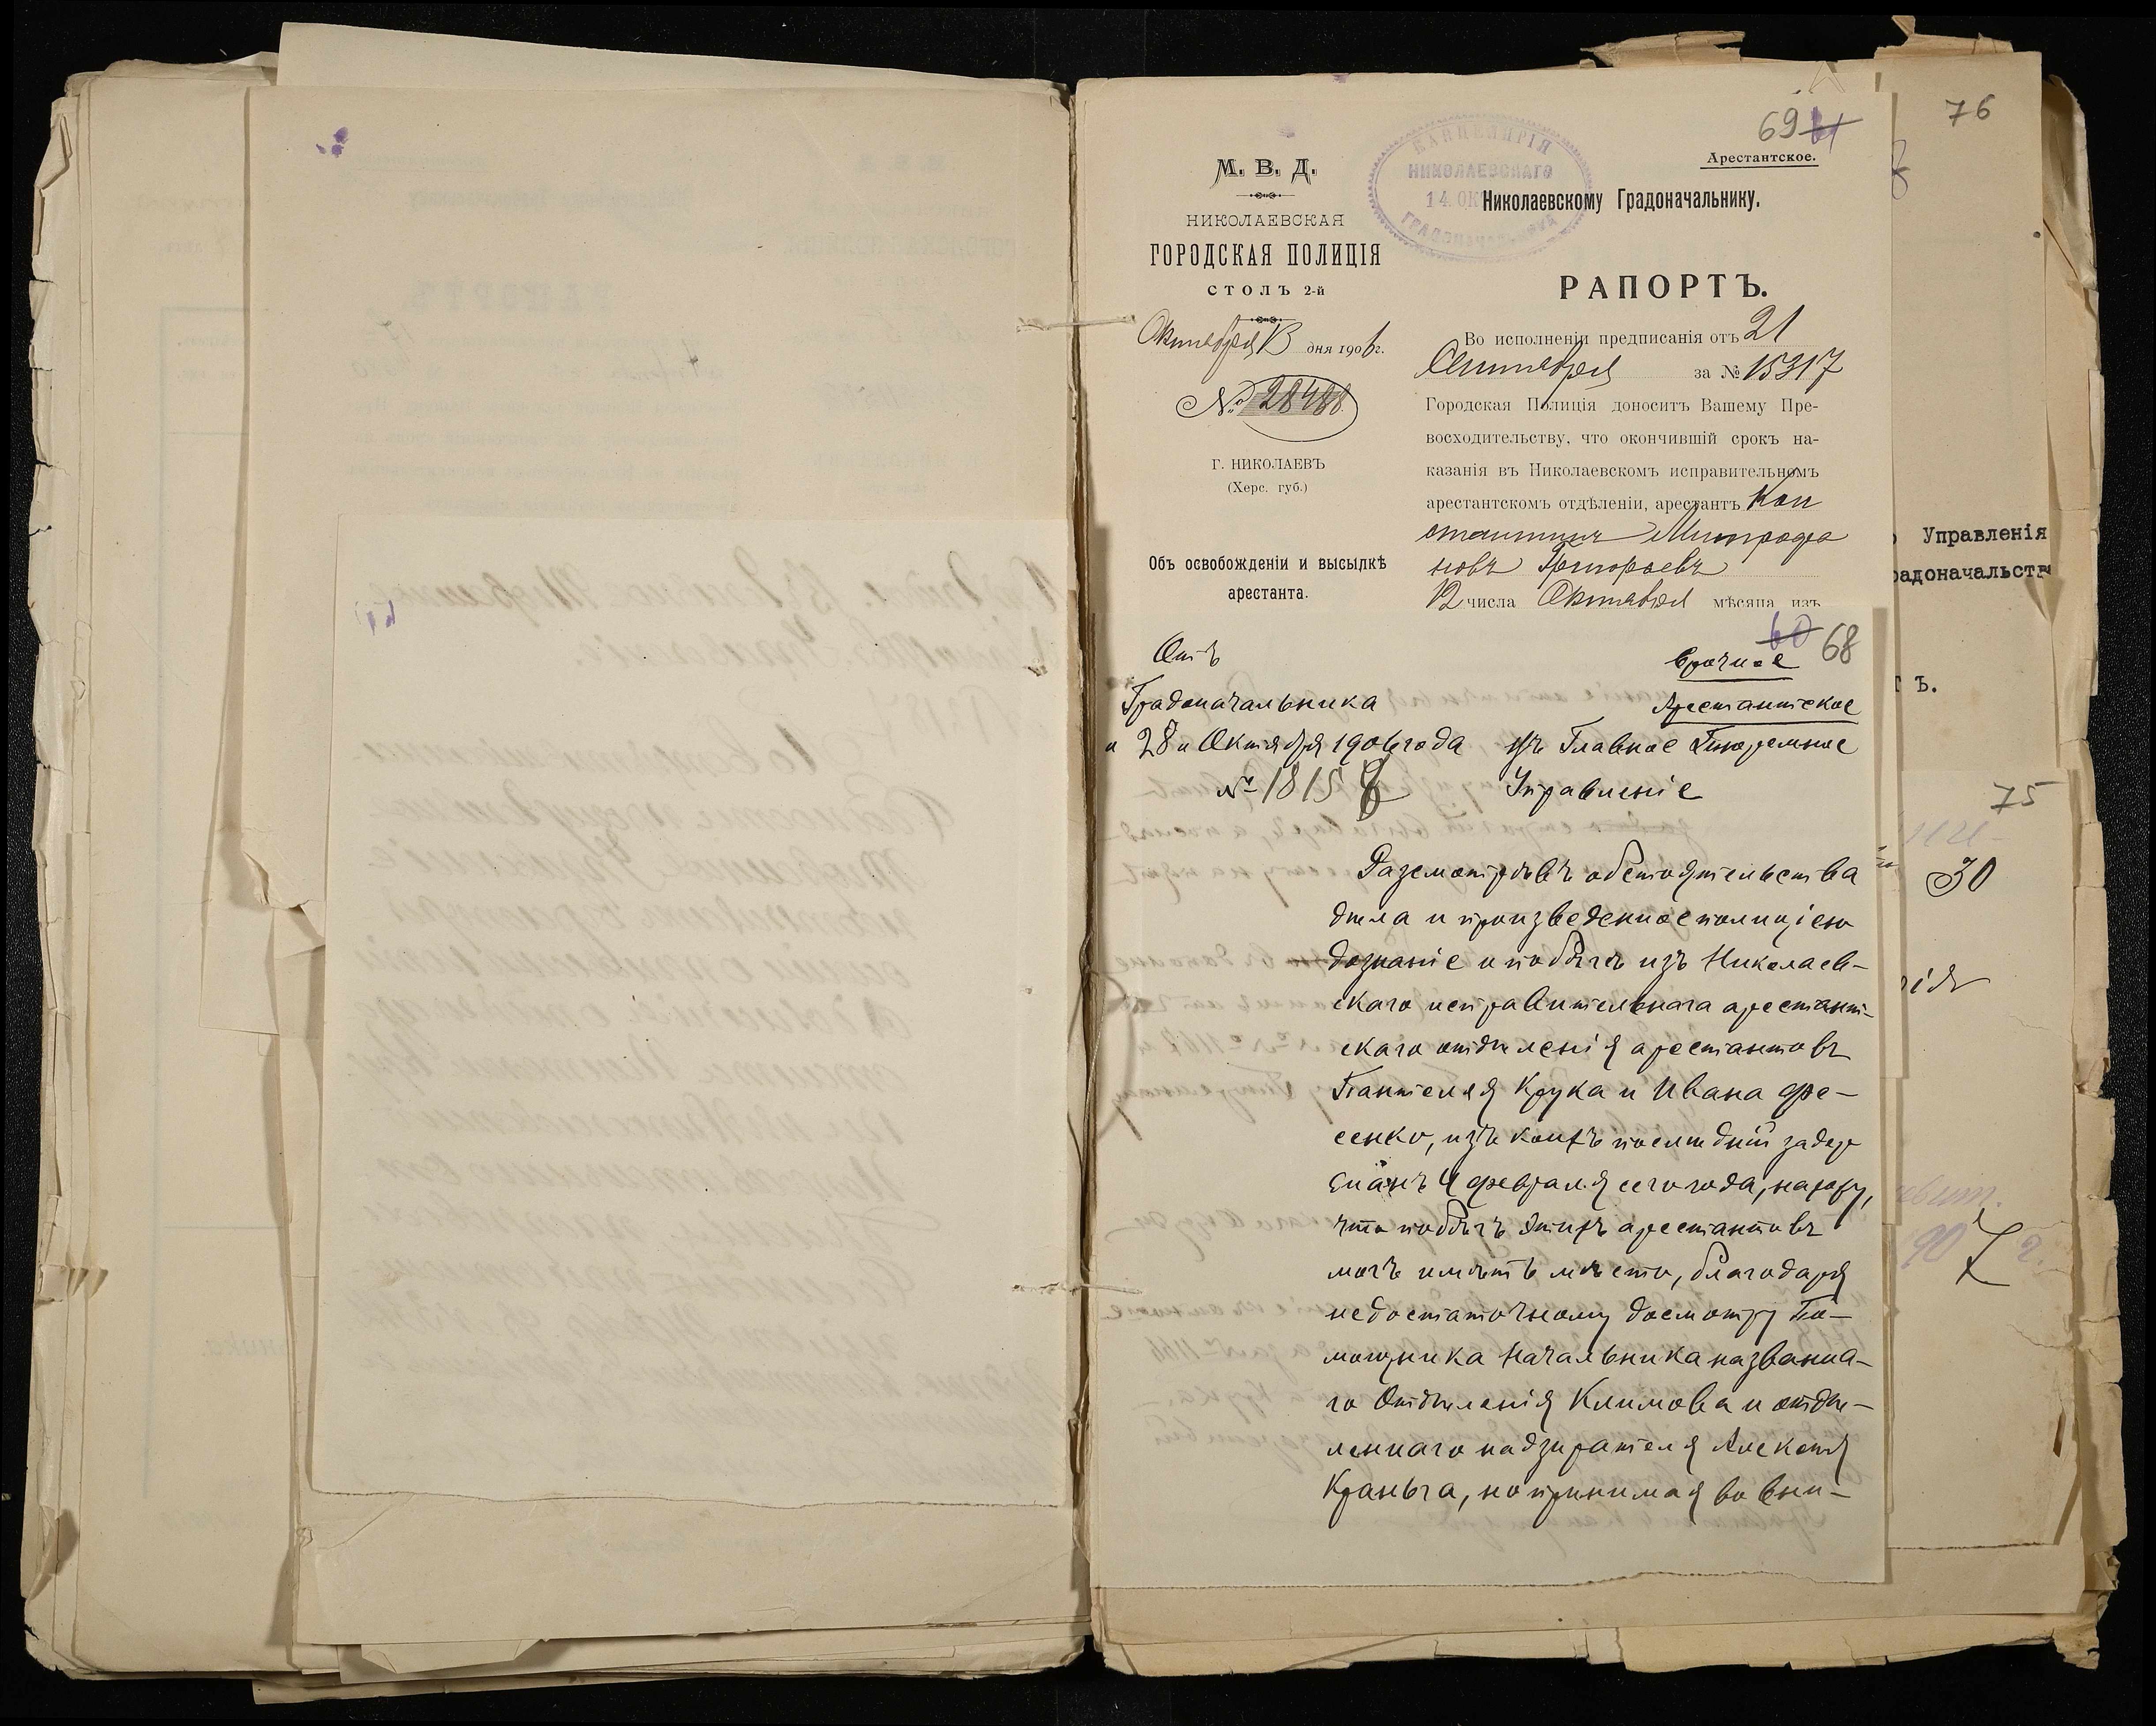 76
69 61
Арестантское.
М. В. Д.
КАНЦЕЛЯРІЯ
НИКОЛАЕВСКАГО
14 ОК
ГРАДОНАЧАЛЬНИКА
Николаевскому Градоначальнику.
НИКОЛАЕВСКАЯ
ГОРОДСКАЯ ПОЛИЦІЯ
СТОЛЪ 2-й
Октября 13 дня 1906 г.
№ 28488
Г. НИКОЛАЕВЪ
(Херс. губ.)
Объ освобожденіи и высылкѣ
арестанта.
РАПОРТЪ.
Во исполненіи предписанія отъ 21
Сентября за № 15317
Городская Полиція доноситъ Вашему Пре-
восходительству, что окончившій срокъ на-
казанія въ Николаевскомъ исправительномъ
арестантскомъ отдѣленіи, арестантъ Кон
стантинъ Митрофа
новъ Григорьевъ
12 числа Октября мѣсяца изъ
60 68
Отъ
Градоначальника
" 28 " Октября 1906 года
№ 18158
Срочное
Арестантское
Въ Главное Тюремное
Управленіе
Разсмотрѣвъ обстоятельства
дѣла и произведенное полиціею
дознаніе о побѣгѣ изъ Николаев-
скаго исправительнаго арестант-
скаго отдѣленія арестантовъ
Пантелея Крука и Ивана Фе-
сенко, изъ коихъ послѣдній задер
жанъ 4 февраля сего года, нахожу,
что побѣгъ этихъ арестантовъ
могъ имѣть мѣсто, благодаря
недостаточному досмотру По-
мощника Начальника названна-
го Отдѣленія Климова и отдѣ-
леннаго надзирателя Алексѣя
Краньга, но принимая во вни-
Управленія
радоначальства
Ъ.
75
30